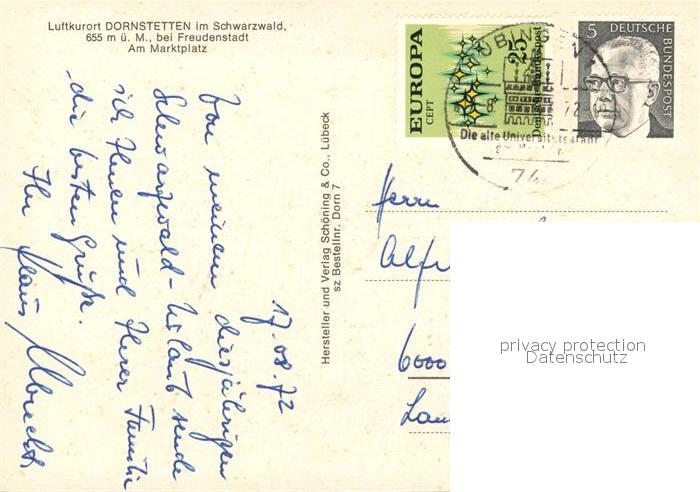 Luftkurort DORNSTETTEN im Schwarzwald,
655 m ü. M., bei Freudenstadt
Am Marktplatz
17.08.72
Von meinem diesjährigen
Schwarzwald-Urlaub sende
ich Ihnen und Ihrer Familie
die besten Grüße.
Ihr Klaus Albrecht
Hersteller und Verlag Schöning & Co., Lübeck
sz Bestellnr. Dorn 7
EUROPA
CEPT
25
Deutsche Bundespost
5
DEUTSCHE
BUNDESPOST
TÜBINGEN
72
Die alte Universitätsstadt
74
Herrn
Alf
6000
privacy protection
Datenschutz